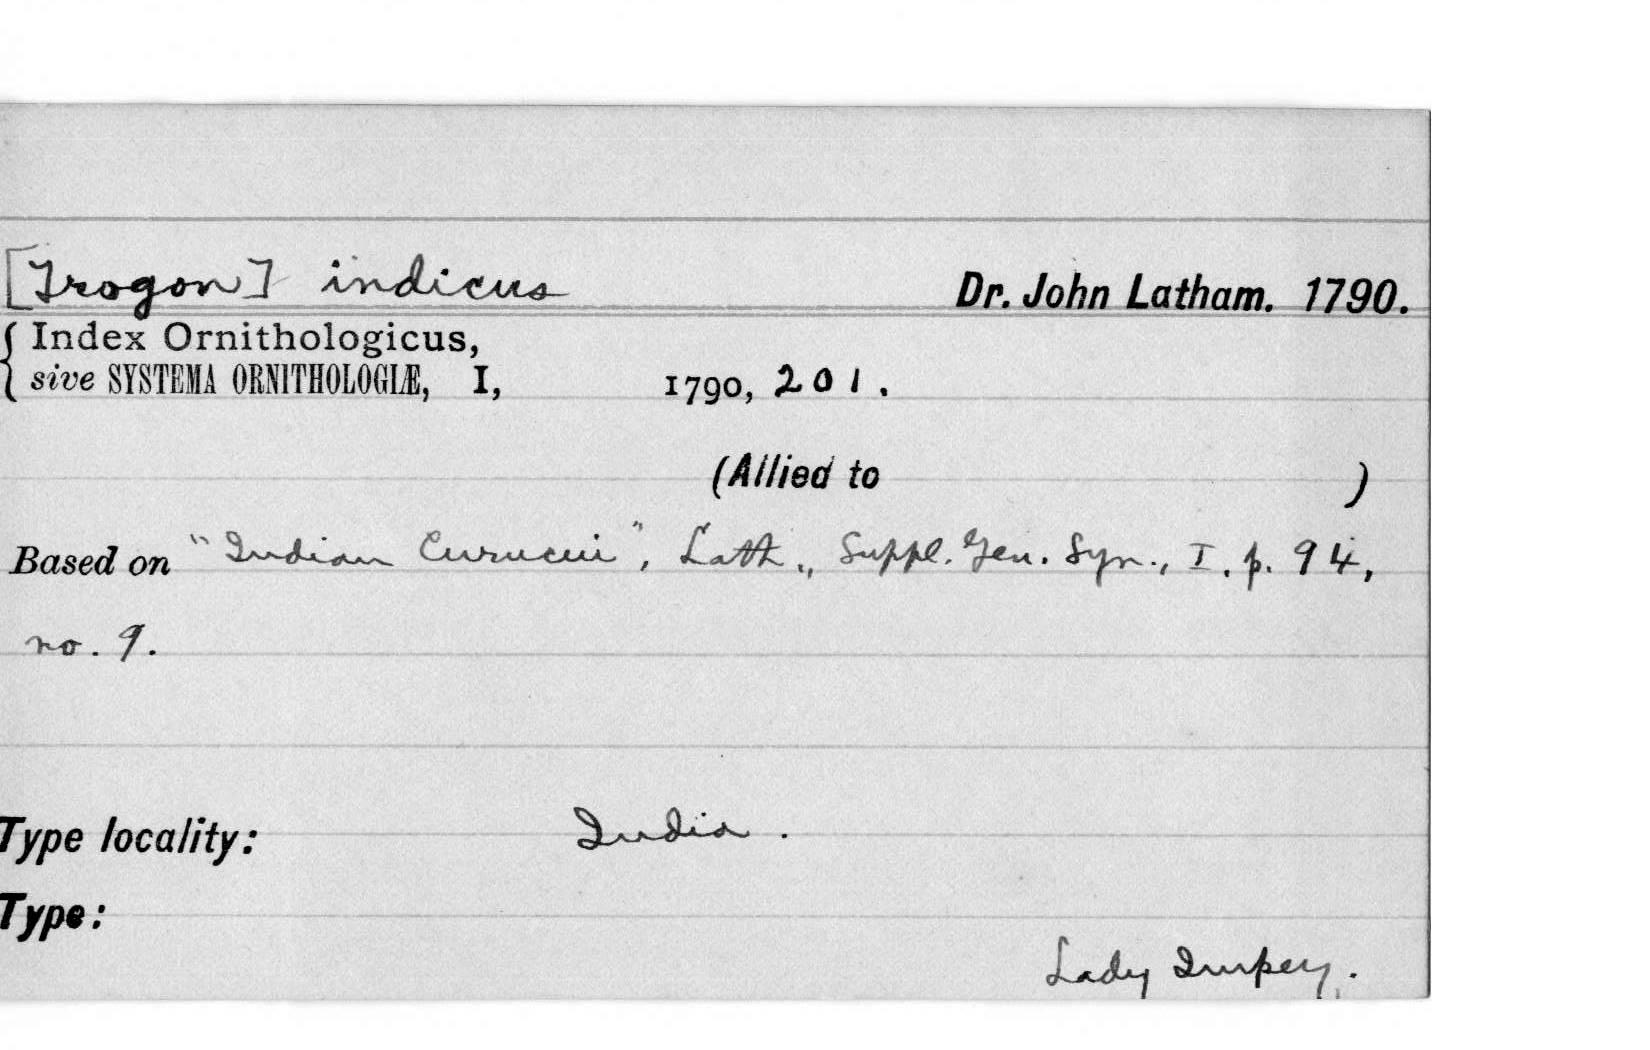 [Trogon] indicus Dr. John Latham. 1790.
Index Ornithologicus,
sive SYSTEMA ORNITHOLOGIÆ, I, 1790, 201.
(Allied to )
Based on "Indian Curucui", Lath., Suppl. Gen. Syn., I. p. 94,
no. 9.
Type locality: India.
Type:
Lady Impey.